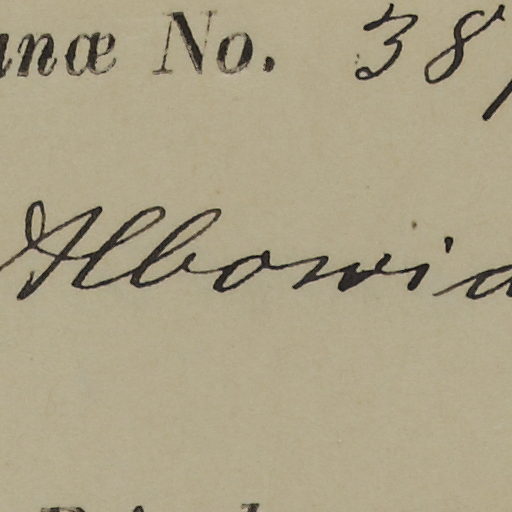 anæ No. 38
Albovia